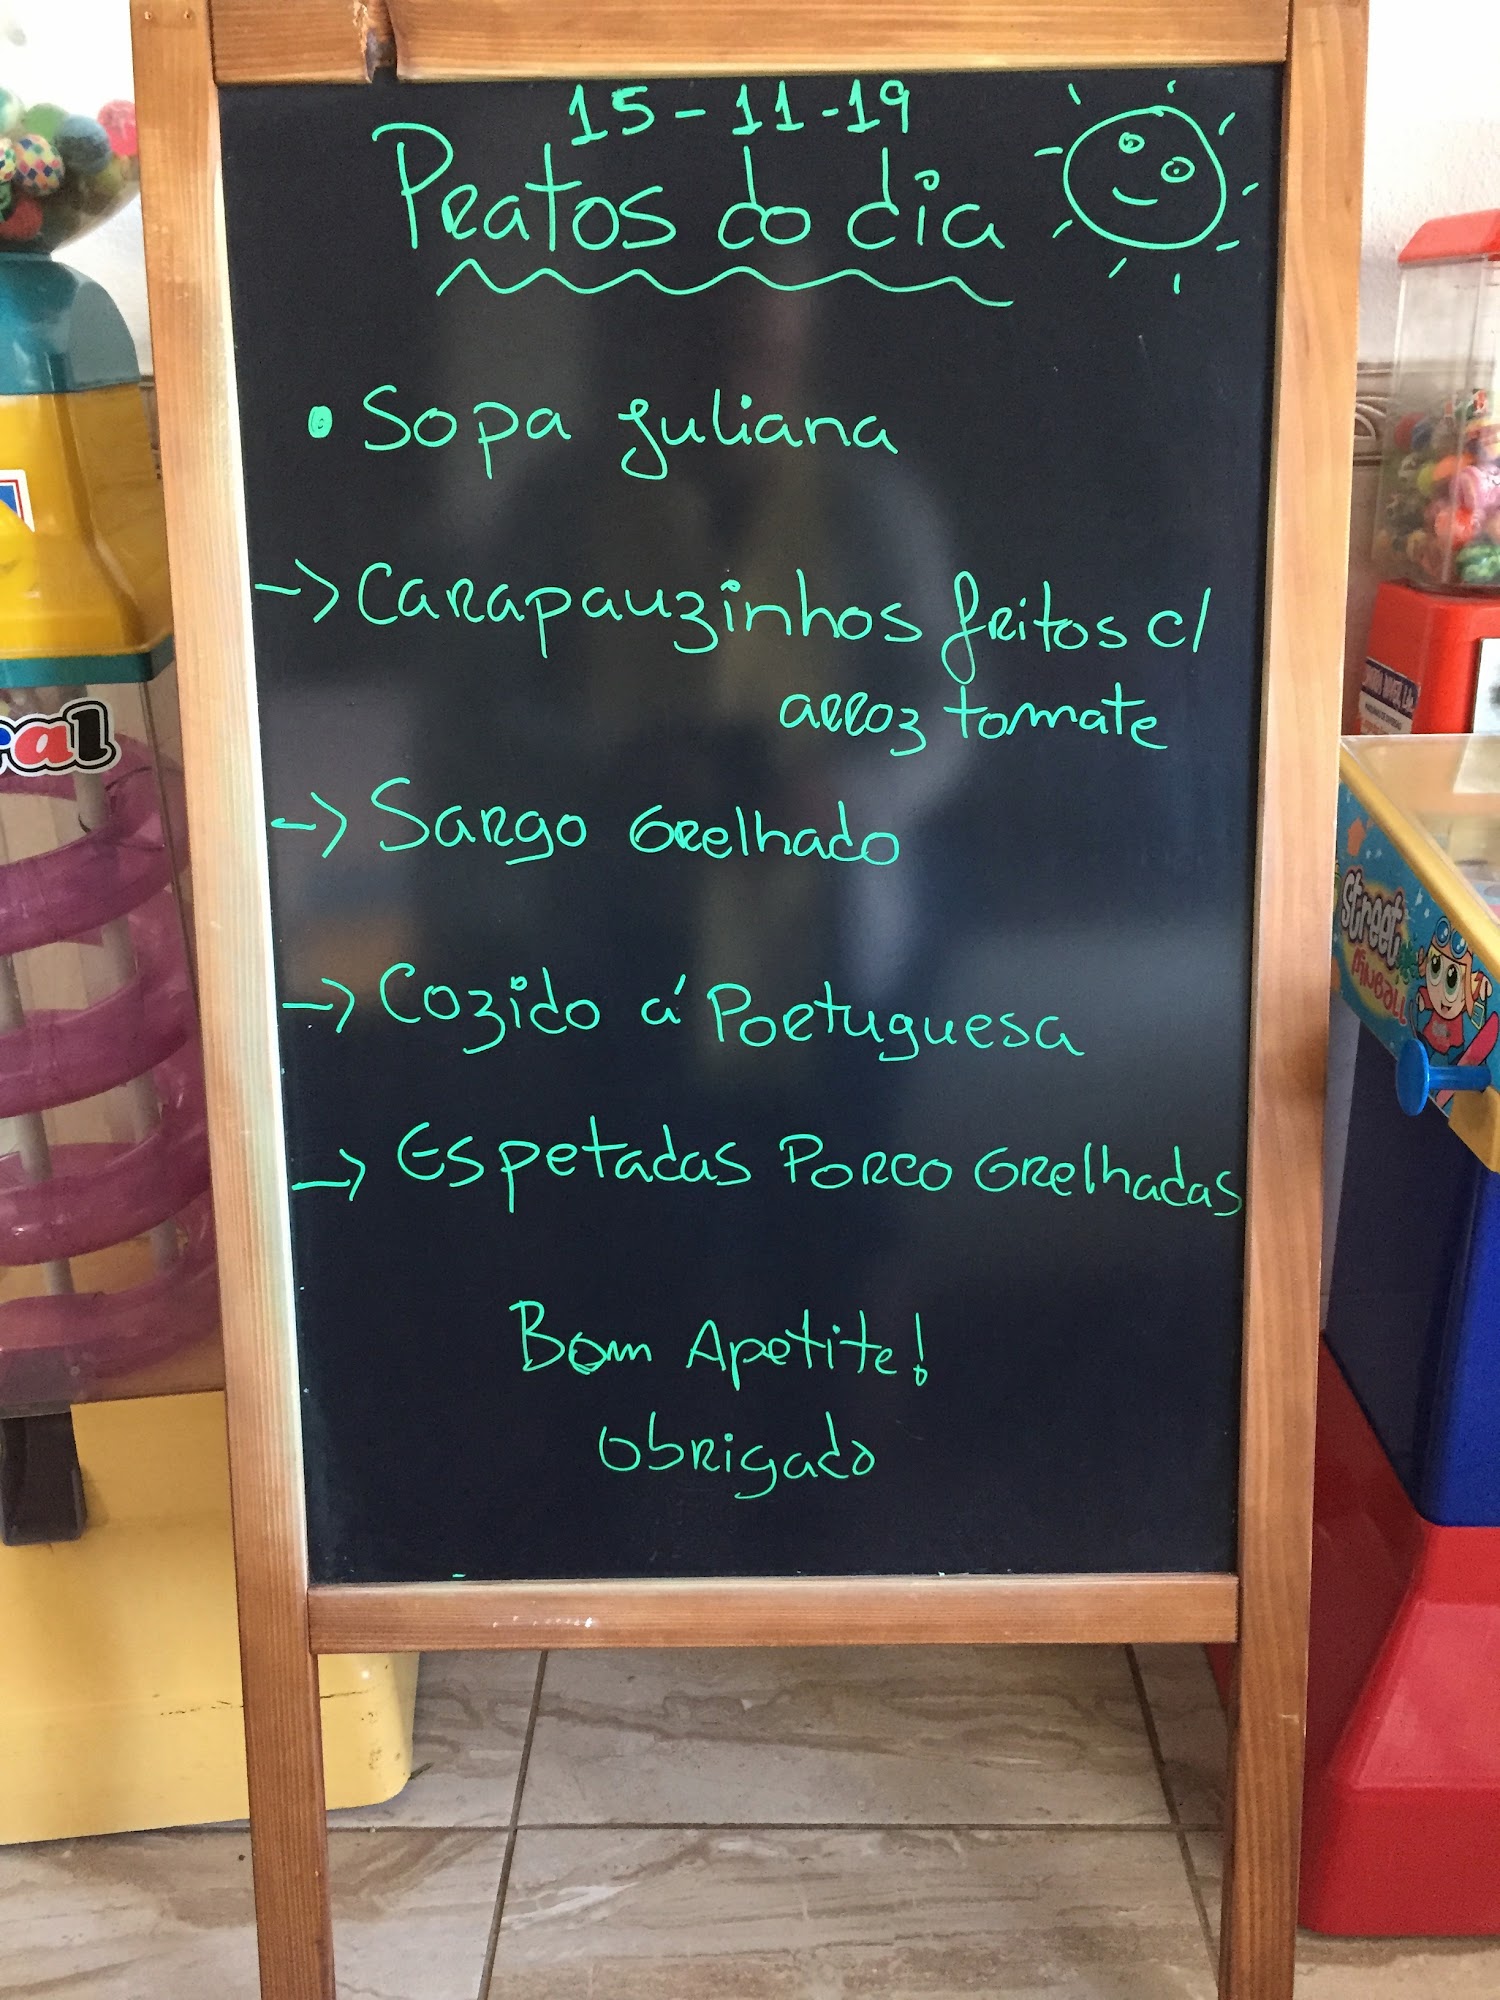 15-11-19
Pratos do dia
• Sopa juliana
-> Carapauzinhos fritos c/
arroz tomate
-> Sargo Grelhado
-> Cozido á Portuguesa
-> Espetadas Porco Grelhadas
Bom Apetite!
Obrigado
al
Street
PINBALL